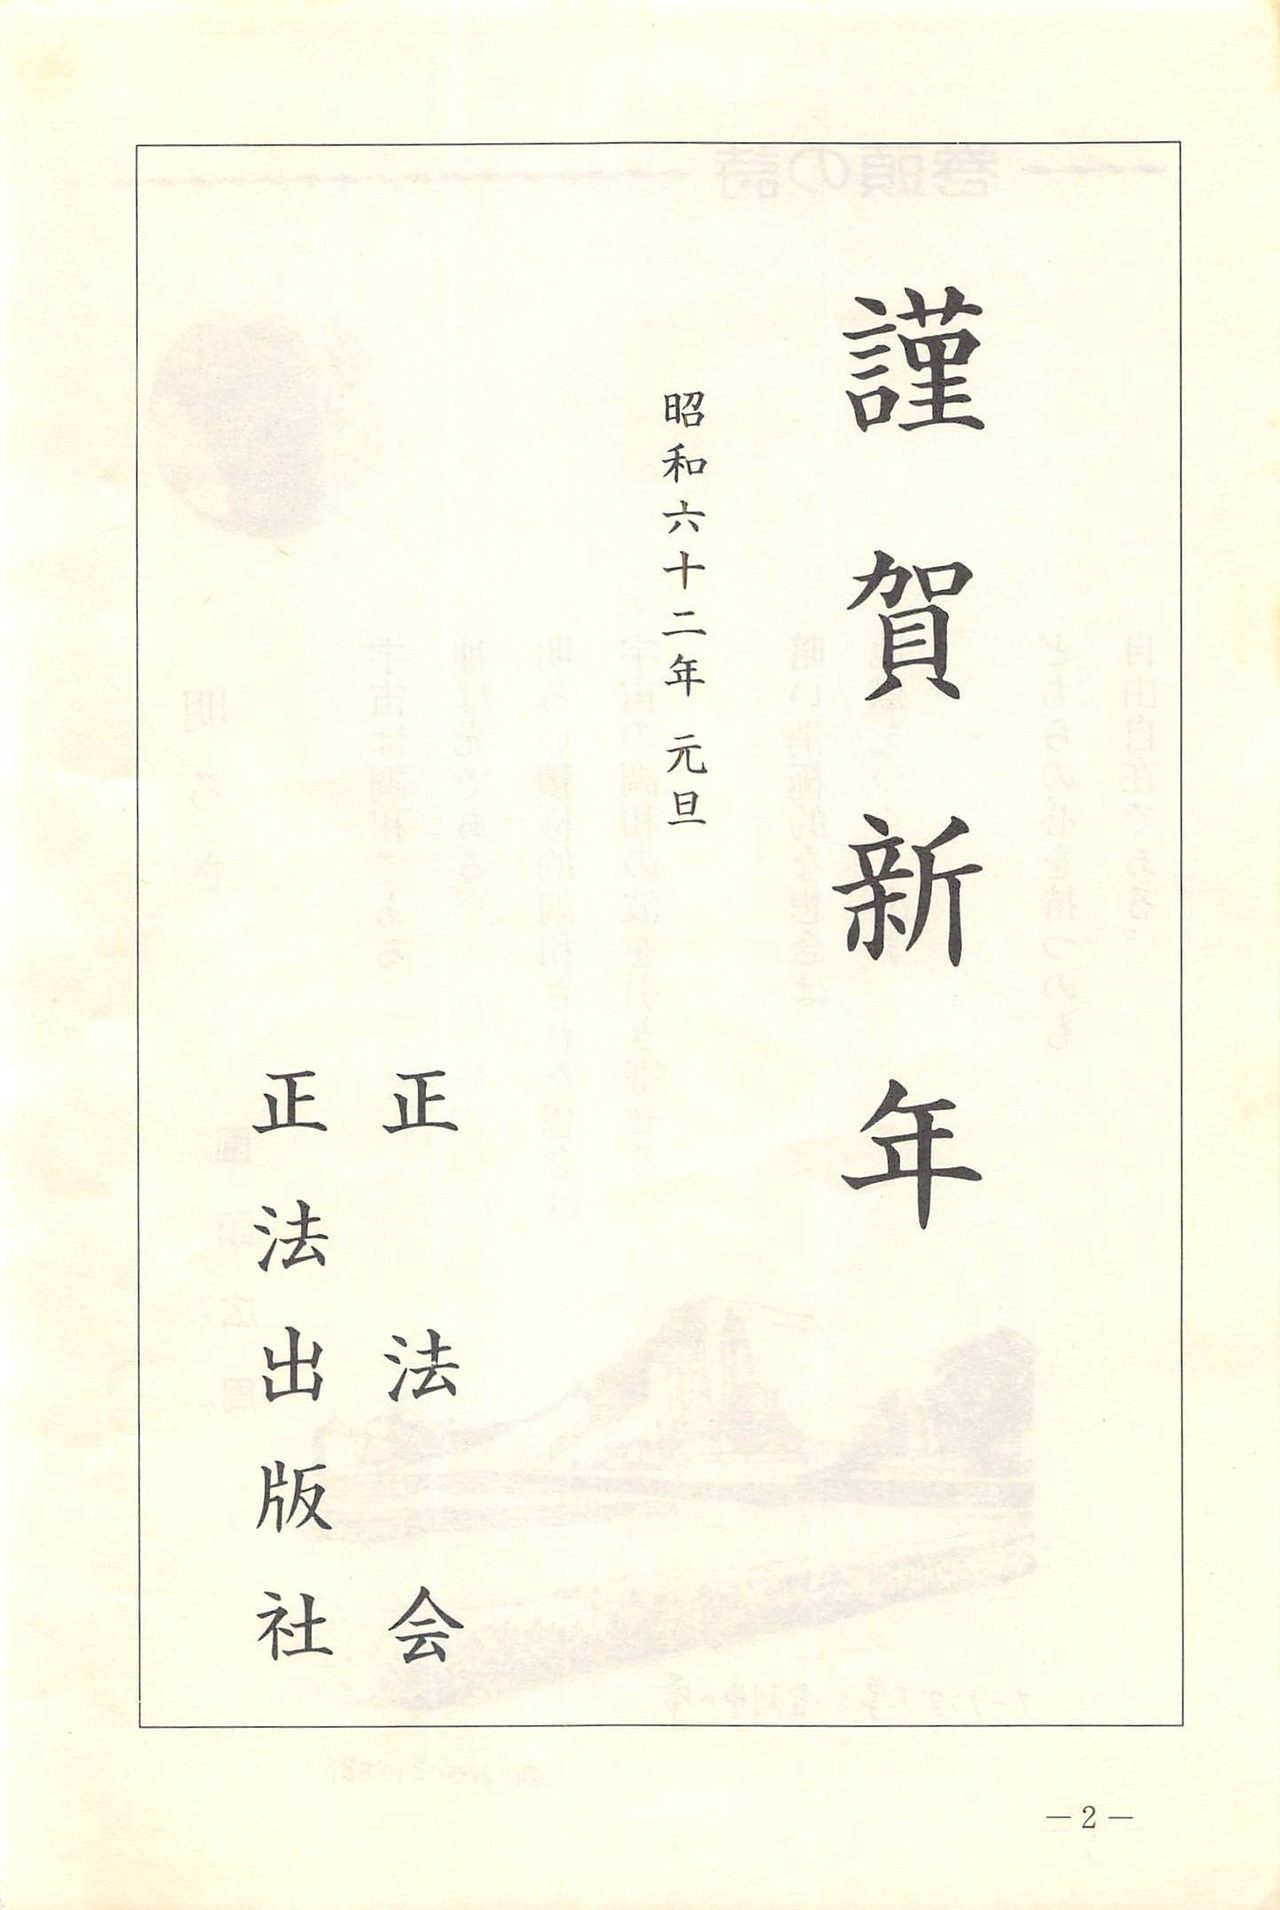 謹賀新年
昭和六十二年 元旦
正法会
正法出版社
—2—